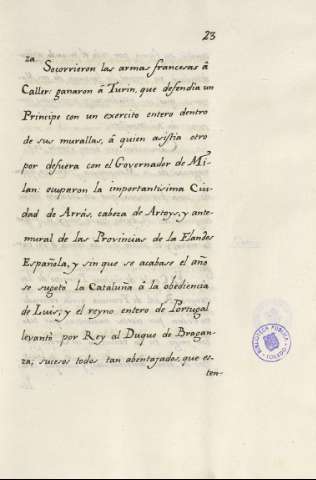 23
za. Socorrieron las armas francesas á
Caller: ganaron á Turin, que defendia un
Principe con un exercito entero dentro
de sus murallas, á quien asistia otro
por defuera con el Governador de Mi-
lan: ocuparon la importantisima Ciu-
dad de Arrás, cabeza de Artoys, y ante-
mural de las Provincias de la Flandes
Española, y sin que se acabase el año
se sugetó la Cataluña á la obediencia
de Luis, y el reyno entero de Portugal
levantó por Rey al Duque de Bragan-
za; sucesos todos tan abentajados, que es-
ten-
BIBLIOTECA PUBLICA
TOLEDO